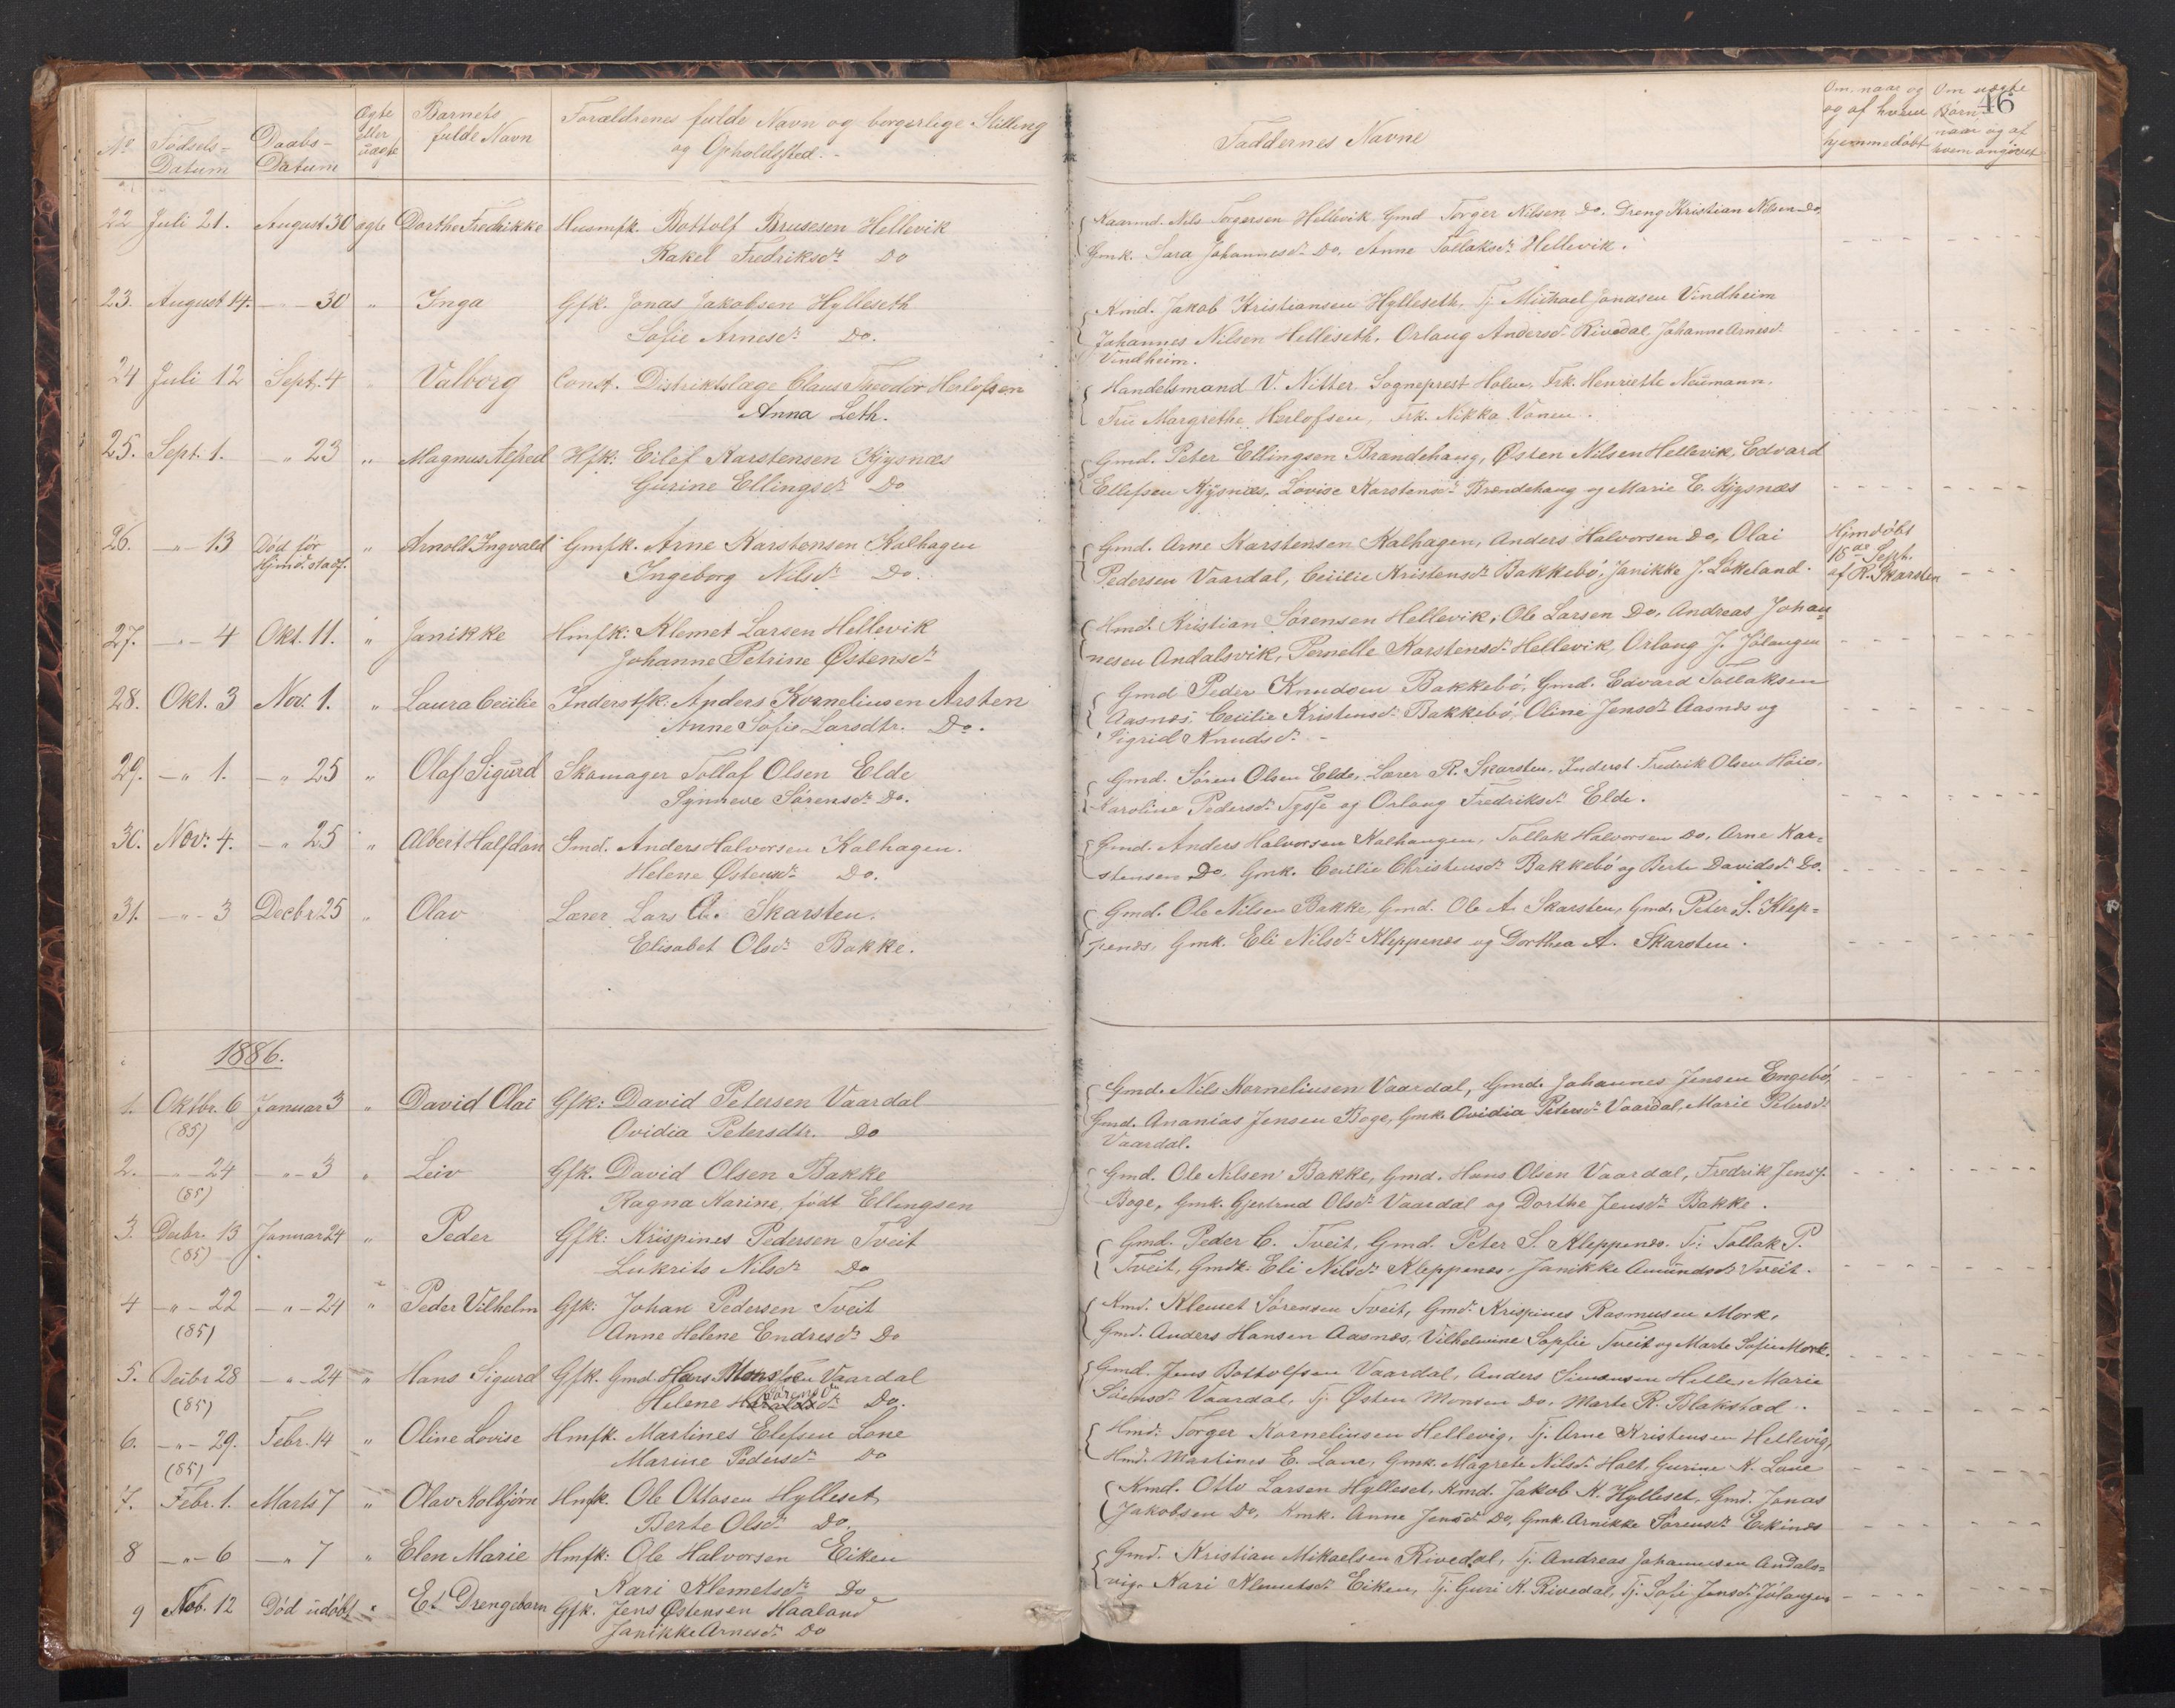 46
No Födsels- Datum
Daabs- Datum
Ægte eller uægte
Barnets fulde Navn
Forældrenes fulde Navn og borgerlige Stilling
og Opholdssted.
Faddernes Navne
Om, naar og
og af hvem
hjemmedöbt
Om uægte
Børn
naar og af
hvem angivet
22 Juli 21. August 30 ægte Dorthe Fredrikke Husmfk. Bottolf Brusesen Hellevik
Rakel Fredriksdr Do
Kaarmd. Nils Torgersen Hellevik Gmd Torger Nilsen Do. Dreng Kristian Nilsen Do,
Gmk. Sara Johannesdr Do. Anne Tollaksdr Hellevik.
23. August 14. - - 30 " Inga Gfk. Jonas Jakobsen Hylleseth
Sofie Arnesdr Do.
Kmd. Jakob Kristiansen Hylleseth, Tj. Michael Jonasen Vindheim
Johannes Nilsen Helleseth, Orlaug Andersdr Rivedal. Johanne Arnesdr
Vindheim.
24 Juli 12 Sept. 4 Valborg Const. Distriktslæge Claus Theodor Herlofsen
Anna Leth.
Handelsmand V. Nitter. Sogneprest Holm, Frk. Henriette Neümann.
Frü Margrethe Herlofsen, Frk. Nikka Vonen.
25. Sept. 1. - " 23 " Magnus Alfred Hfk: Eilef Karstensen Kjysnæs
Gurine Ellingsdr Do
Gmd. Peter Ellingsen Brandehaug, Østen Nilsen Hellevik, Edvard
Ellefsen Kjysnæs, Lovise Karstensdr Brandehaug og Marie E. Kjysnæs
26. - " - 13 Död før Hjmd. stadf. " Arnold Ingvald Gmfk. Arne Karstensen Kalhagen
Ingeborg Nilsdr Do.
Gmd. Arne Karstensen Kalhagen, Anders Halvorsen Do, Olai
Pedersen Vaardal, Cecilie Kristensdr Bakkebö, Janikke J. Lökeland.
Hjmdöbt
18de Septb.
af R. Skarsten
27. - " - 4 Okt. 11. " Janikke Hmfk: Klemet Larsen Hellevik
Johanne Petrine Østensdr
Hmd. Kristian Sørensen Hellevik, Ole Larsen Do, Andreas Johan=
nesen Andalsvik, Pernelle Karstensdr Hellevik, Orlaug J. Jölangen
28. Okt. 3 Nov. 1. " Laura Cecilie Inderstfk: Anders Korneliusen Arsten
Anne Sofie Larsdtr. Do.
Gmd Peder Knudsen Bakkebö, Gmd. Edvard Tollaksen
Aasnæs, Cecilie Kristensdr Bakkebö, Oline Jensdr Aasnæs og
Sigrid Knudsdr -
29. - " 1. - " 25 " Olaf Sigurd Skomager Tollaf Olsen Elde
Synneve Sørensdr Do.
Gmd. Søren Olsen Elde, Lærer R. Skarsten, Inderst Fredrik Olsen
Karoline Pedersdr og Orlaug Fredriksdr Elde.
30. Nov: 4. - " 25 " Albert Halfdan Gmd. Anders Halvorsen Kalhagen.
Helene Østensdr Do.
Gmd. Anders Halvorsen Kalhaugen, Tollak Halvorsen Do. Arne Kar=
stensen Do. Gmk. Cecilie Christensdr Bakkebö og Berte Davidsdr Do.
31. - " - 3 Decbr 25 " Olav Lærer Lars A. Skarsten.
Elisabet Olsdr Bakke.
Gmd. Ole Nilsen Bakke, Gmd. Ole A. Skarsten, Gmd. Peter S. Klep=
penæs, Gmk. Eli Nilsdr Kleppenæs og Dorthea A. Skarsten.
1886.
1. Oktbr. 6 (85) Januar 3 " David Olai Gfk: David Petersen Vaardal
Ovidia Petersdtr. Do
Gmd. Nils Korneliusen Vaardal, Gmd. Johannes Jensen Engebö,
Gmd. Ananias Jensen Boge, Gmk. Ovidia Petersdr Vaardal, Marie Petersdr
Vaardal.
2. - " - 24 (85) - " - 3 " Leiv Gfk. David Olsen Bakke
Ragna Karine, født Ellingsen
Gmd. Ole Nilsen Bakke, Gmd. Hans Olsen Vaardal, Fredrik Jens.
Boge, Gmk. Gjertrud Olsdr Vaardal og Dorthe Jensdr Bakke.
3. Decbr. 13 (85) Januar 24 " Peder Gfk: Krispines Pedersen Tveit
Lukrits Nilsdr Do
Gmd. Peder C. Tveit, Gmd. Peter S. Kleppenæs. Tj. Tollak P.
Tveit, Gmdk: Eli Nilsdr Kleppenes, Janikke Amündsdr Tveit.
4 - " - 22 (85) - " - 24 " Peder Vilhelm Gfk: Johan Pedersen Tveit
Anne Helene Endresdr Do
Kmd. Klemet Sörensen Tveit, Gmd. Krispines Rasmusen Mork,
Gmd. Anders Hansen Aasnæs, Vilhelmine Sopfie Tveit og Marte Sofie Mork.
5. Decbr 28 (85) - " - 24 " Hans Sigurd Gfk. Gmd. Hans Monsen Vaardal
Helene Sørensdr Do.
Gmd. Jens Bottolfsen Vaardal, Anders Simonsen Helle, Marie
Sörensdr Vaardal, Tj. Østen Monsen Do, Marte R. Blakstad.
6. - " - 29. (85) Febr. 14 " Oline Lovise Hmfk. Martines Elefsen Lone
Marine Pedersdr Do
Hmd: Torger Korneliusen Hellevig, Tj. Arne Kristensen Hellevig,
Hmd. Martines E. Lone, Gmk. Magrete Nilsdr Holt, Gurine K. Lone
7. Febr. 1. Marts 7 " Olav Kolbjörn Hmfk. Ole Ottosen Hylleset
Berte Olsdr Do.
Kmd. Otto Larsen Hylleset, Kmd. Jakob K. Hylleset, Gmd. Jonas
Jakobsen Do, Kmk. Anne Jensdr Do, Gmk. Arnikke Sørensdr Eikinæs
8 - " - 6 - " 7 " Elen Marie Hmfk: Ole Halvorsen Eiken
Kari Klemetsdr Do
Gmd. Kristian Mikaelsen Rivedal, Tj. Andreas Johannesen Andals=
vig. Kari Klemetsdr Eiken, Tj. Guri K. Rivedal, Tj. Sofi Jensdr Jölangen
9 Feb. 12 Död üdöbt " Et Drengebarn Gfk. Jens Østensen Haaland
Janikke Arnesdr Do